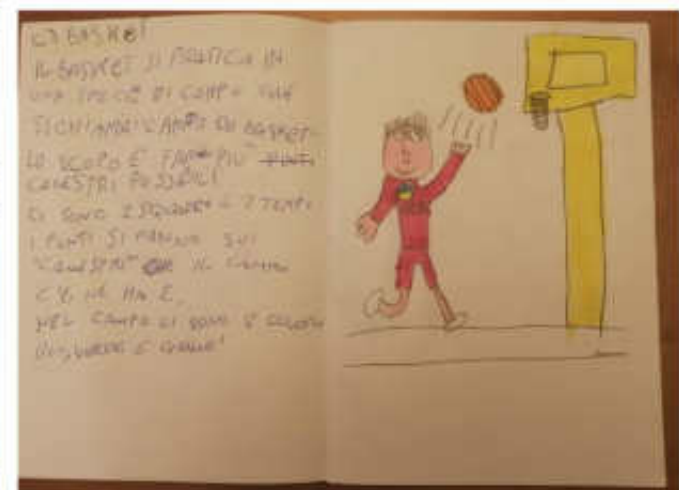 BASKET
IL BASKET SI PRATICA IN
UNA SPECIE DI CAMPO CHE
SI CHIAMA "CAMPO DA BASKET".
LO SCOPO È FARE PIÙ
CANESTRI POSSIBILI
CI SONO 2 SQUADRE E 2 TEMPI.
I PUNTI SI FANNO SUI
"CANESTRI" IL CAMPO
NE HA 2.
NEL CAMPO CI SONO